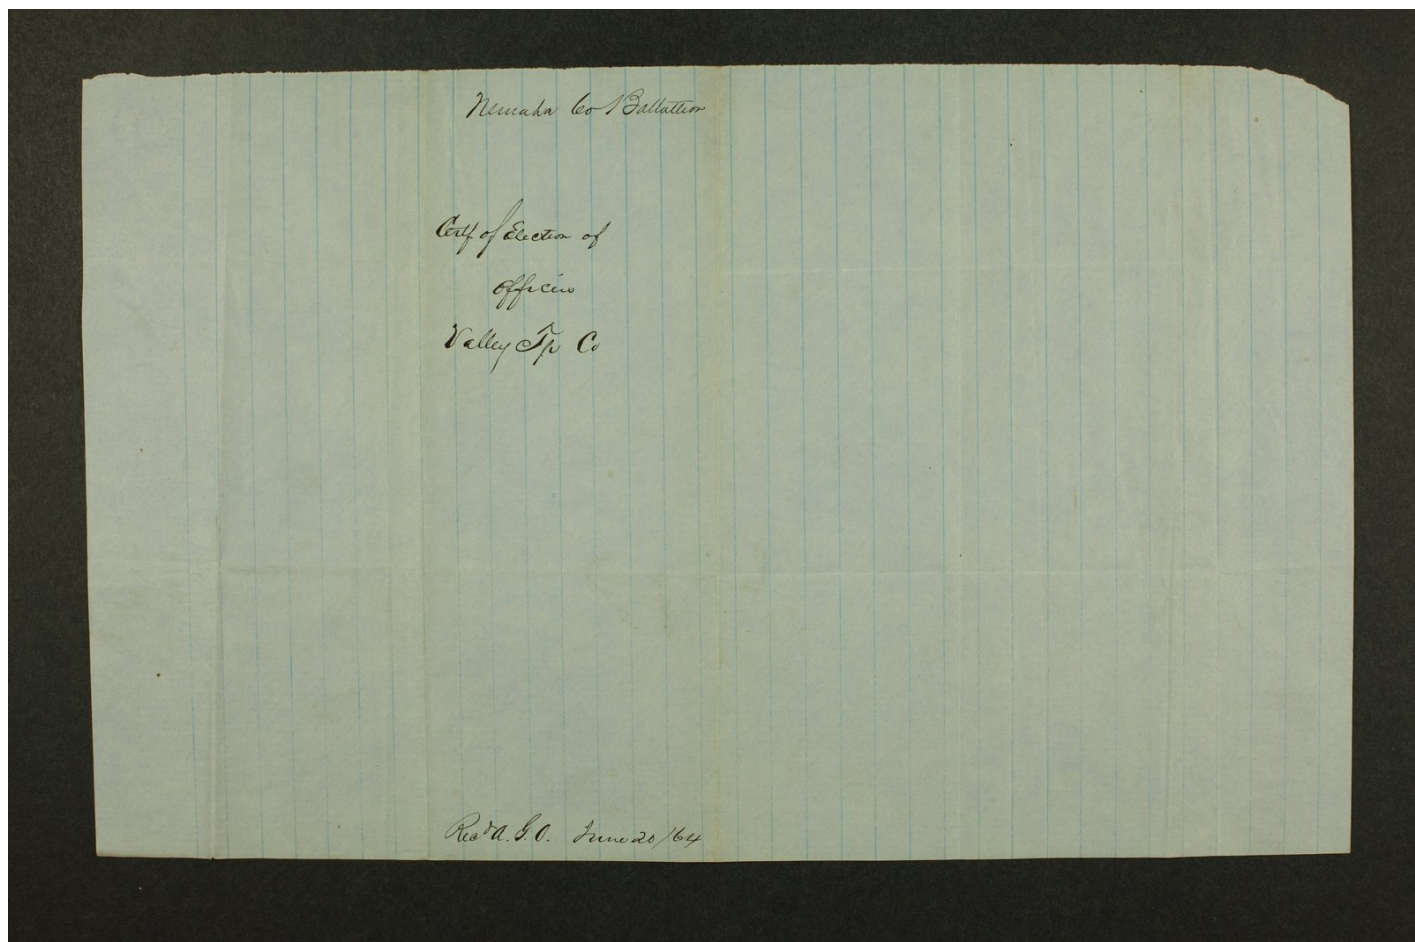 Nemaha Co Battallion
Certf of Election of
officers
Valley Tp Co
Recd A. G. O. June 20/64